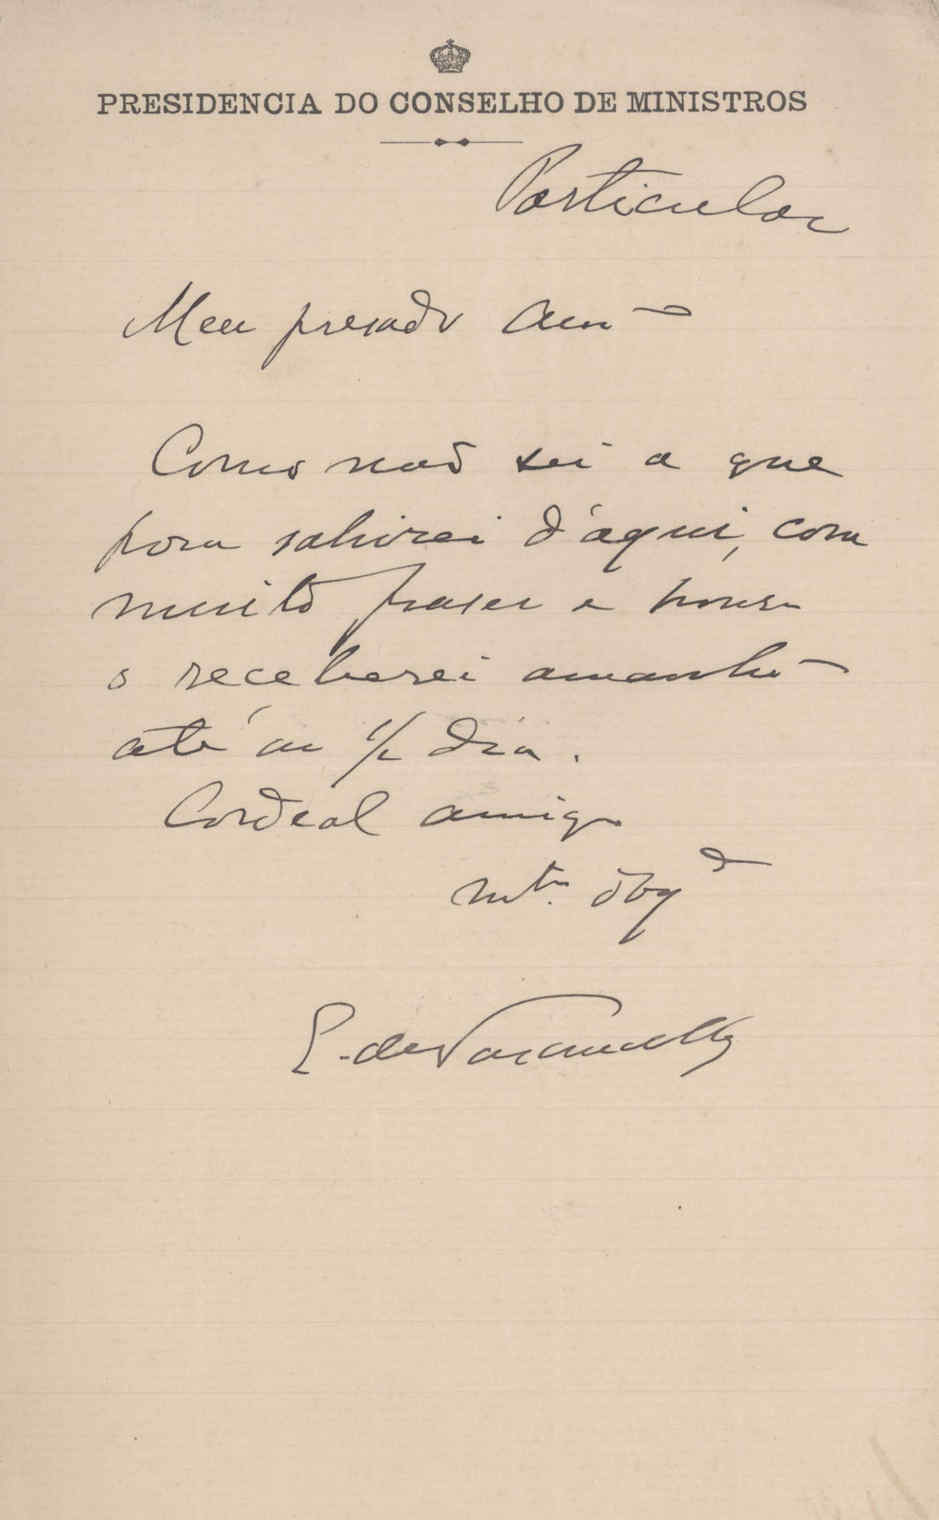 PRESIDENCIA DO CONSELHO DE MINISTROS
Particular
Meu presado Am
Como não sei a que
hora sahirei d'aqui, com
muito praser e honra
o receberei amanhã
até ao 1/2 dia.
Cordeal amigo
mto. obgdo
E. de Vasconcellos